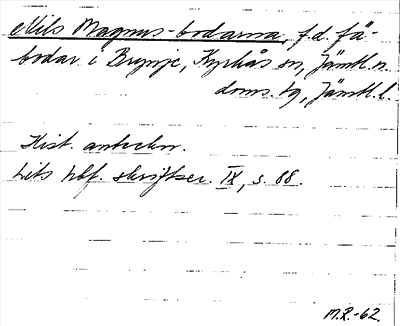 Nils Magnus-bodarna, f.d. fä-
bodar i Brynje, Kyrkås sn, Jämtl. n.
doms. tg, Jämtl. l.
Hist. anteckn.
Lits hbf. skriftser. IX, s. 88.
M.R.-62.